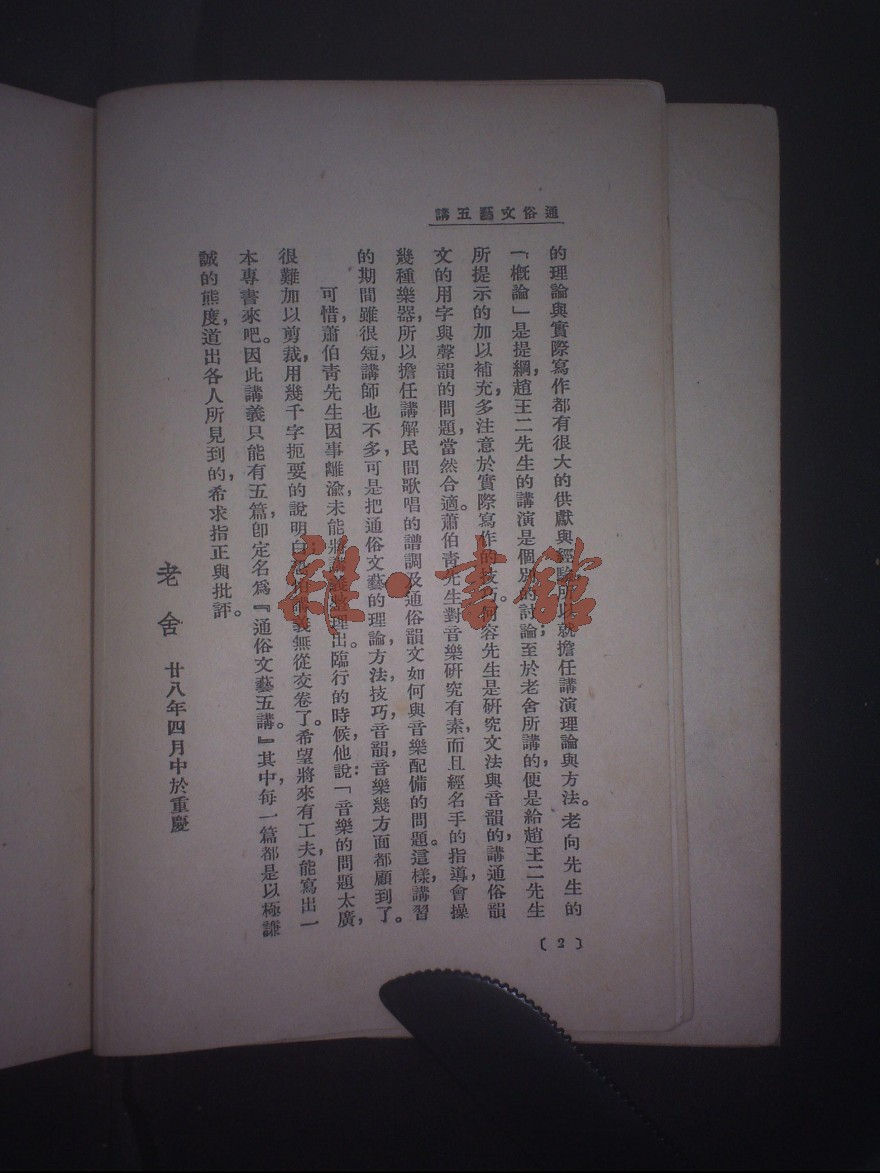 通俗文藝五講
的理論與實際寫作都有很大的供獻與經驗，所以就擔任講演理論與方法。老向先生的
「概論」是提綱，趙王二先生的講演是個別的討論；至於老舍所講的，便是給趙王二先生
所提示的加以補充，多注意於實際寫作的技巧。何容先生是研究文法與音韻的，講通俗韻
文的用字與聲韻的問題，當然合適。蕭伯靑先生對音樂研究有素，而且經名手的指導，會操
幾種樂器，所以擔任講解民間歌唱的譜調及通俗韻文如何與音樂配備的問題。這樣，講習
的期間雖很短，講師也不多，可是把通俗文藝的理論，方法，技巧，音韻，音樂幾方面都顧到了。
可惜，蕭伯靑先生因事離渝，未能將講義整理出。臨行的時候，他說：「音樂的問題太廣，
很難加以剪裁，用幾千字扼要的說明白；講義無從交卷了。希望將來有工夫能寫出一
本專書來吧。因此講義只能有五篇，卽定名爲『通俗文藝五講。』其中每一篇，都是以極謙
誠的態度，道出各人所見到的，希求指正與批評。
老舍 廿八年四月中於重慶
〔2〕
雜·書館